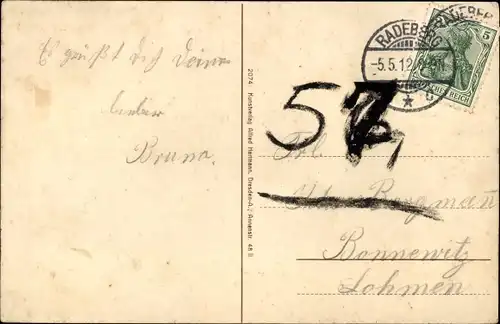 Es grüßt dich Deine
lieber
Bruna.
2074 Kunstverlag Alfred Hartmann, Dresden-A., Annenstr. 48 II
RADEBERG
-5.5.12
5
REICH
57
Frl
Bergmann
Bonnewitz
Lohmen